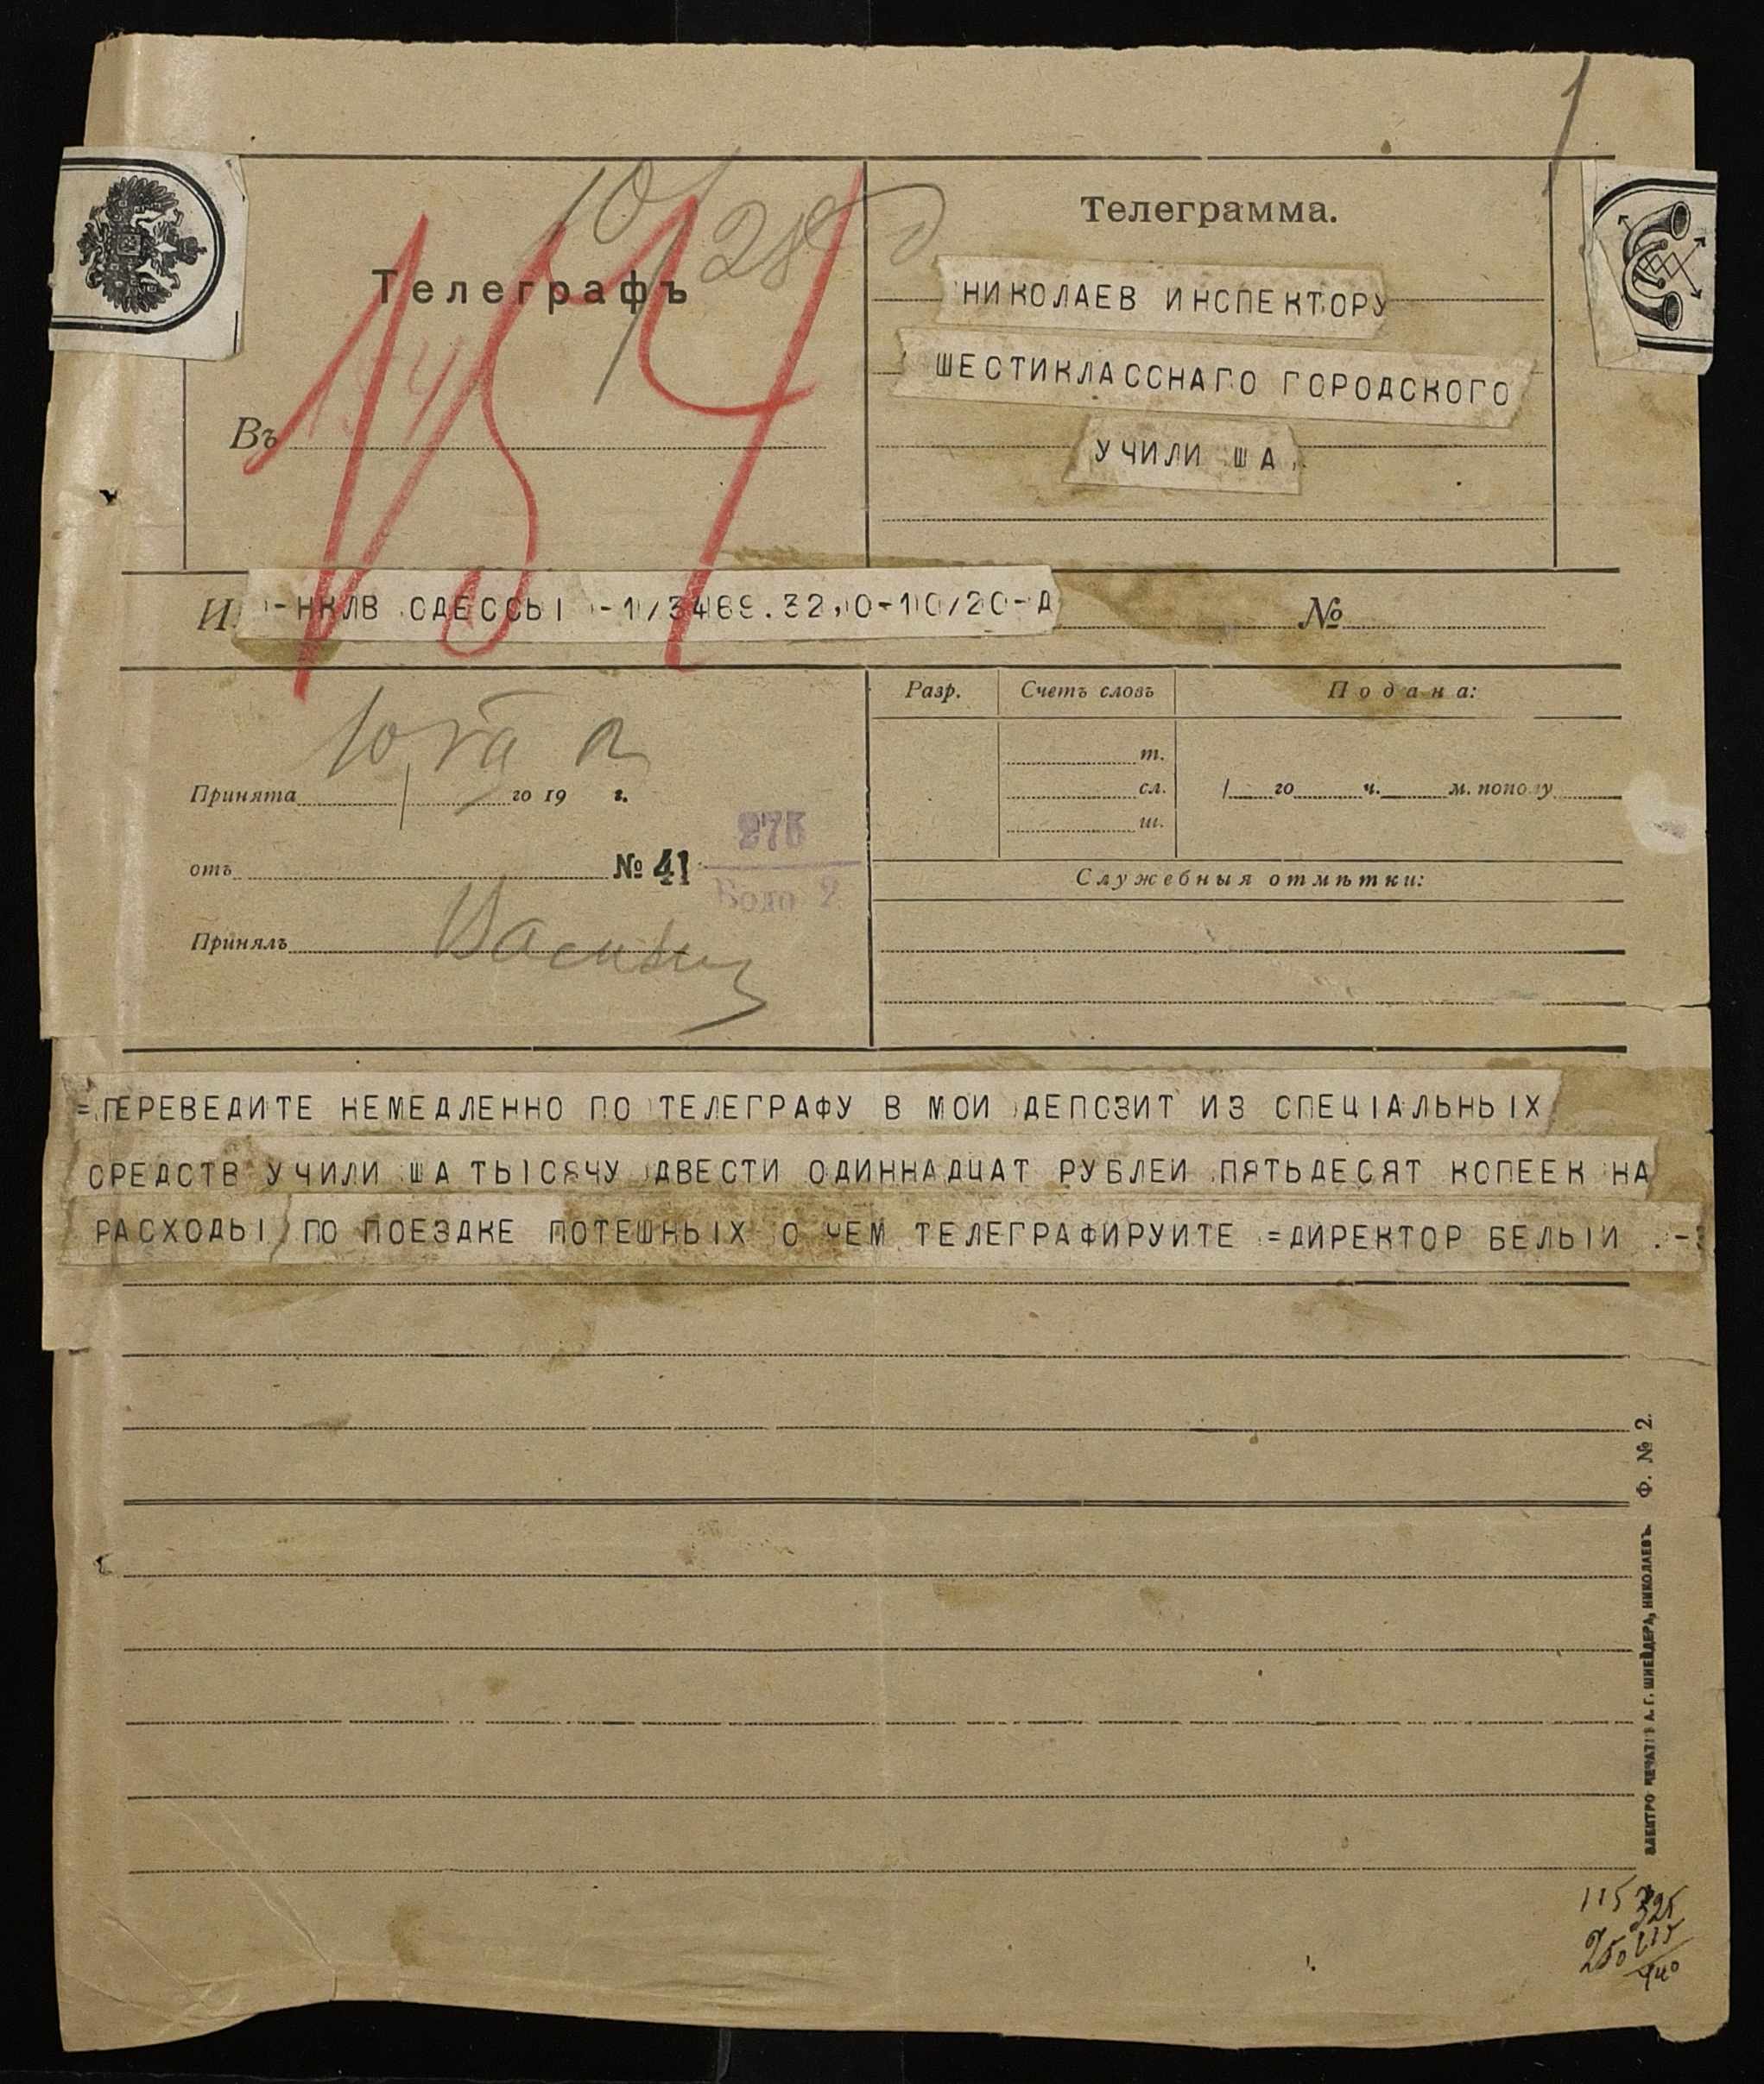 1
Телеграмма.
10/ 28
Телеграфъ
НИКОЛАЕВ ИНСПЕКТОРУ
ШЕСТИКЛАССНАГО ГОРОДСКОГО
Въ
154
УЧИЛИ ША
154
И
-НКЛВ ОДЕССЫ -1/3469.32,0-10/20-Д
№
Разр. Счетъ словъ Подана:
т.
Принята го 19 г.
сл. / го ч. м. пополу
ш.
275
отъ № 41
Бодо 2.
Служебныя отмѣтки:
Принялъ
=ПЕРЕВЕДИТЕ НЕМЕДЛЕННО ПО ТЕЛЕГРАФУ В МОИ ДЕПОЗИТ ИЗ СПЕЦІАЛЬНЫХ
СРЕДСТВ УЧИЛИ ША ТЫСЯЧУ ДВЕСТИ ОДИННАДЦАТ РУБЛЕИ ПЯТЬДЕСЯТ КОПЕЕК НА
РАСХОДЫ ПО ПОЕЗДКЕ ПОТЕШНЫХ О ЧЕМ ТЕЛЕГРАФИРУИТЕ =ДИРЕКТОР БЕЛЫИ .-
Ф. № 2.
ЭЛЕКТРО ПЕЧАТНЯ А. Г. ШНЕЙДЕРА, НИКОЛАЕВЪ.
115 325
250 115
440